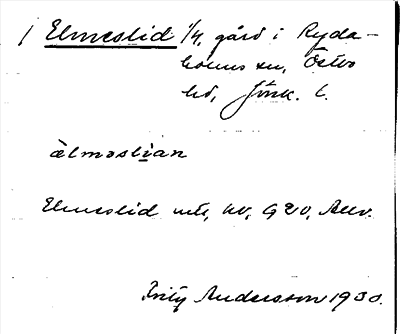 Elmeslid 1/4, gård i Ryda-
holms sn, Östbo
hd, Jönk. l.
älmǝslian
Elmeslid
Fritz Andersson 1930.